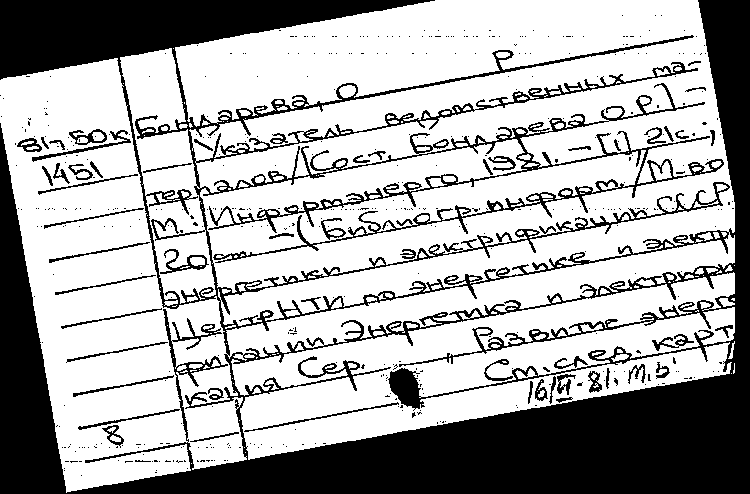 81-50к Бондарева, О Р
1451 Указатель ведомственных ма-
териалов/[Сост. Бондарева О.Р.].-
М.: Информэнерго, 1981. - [1], 21с.;
20 см. - (Библиогр. информ. / М-во
энергетики и электрификации СССР.
ЦентрНТИ по энергетике и электри
фикации. Энергетика и электрифи
кация Сер. " Развитие энерге
См. след. карт
8 16/VI-81. М.Ь.